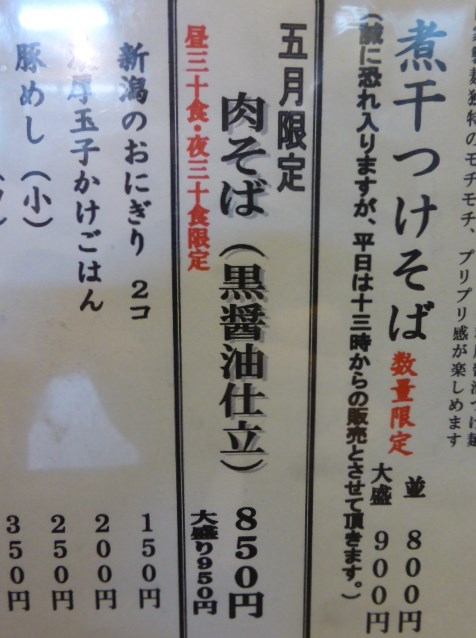 独特のモチモチ、プリプリ感が楽しめます
煮干つけそば 数量限定
並 800円
大盛 900円
(誠に恐れ入りますが、平日は十三時からの販売とさせて頂きます。)
五月限定
肉そば(黒醤油仕立) 850円
昼三十食・夜三十食限定
大盛り950円
新潟のおにぎり 2コ 150円
厚玉子かけごはん 200円
豚めし(小) 250円
350円